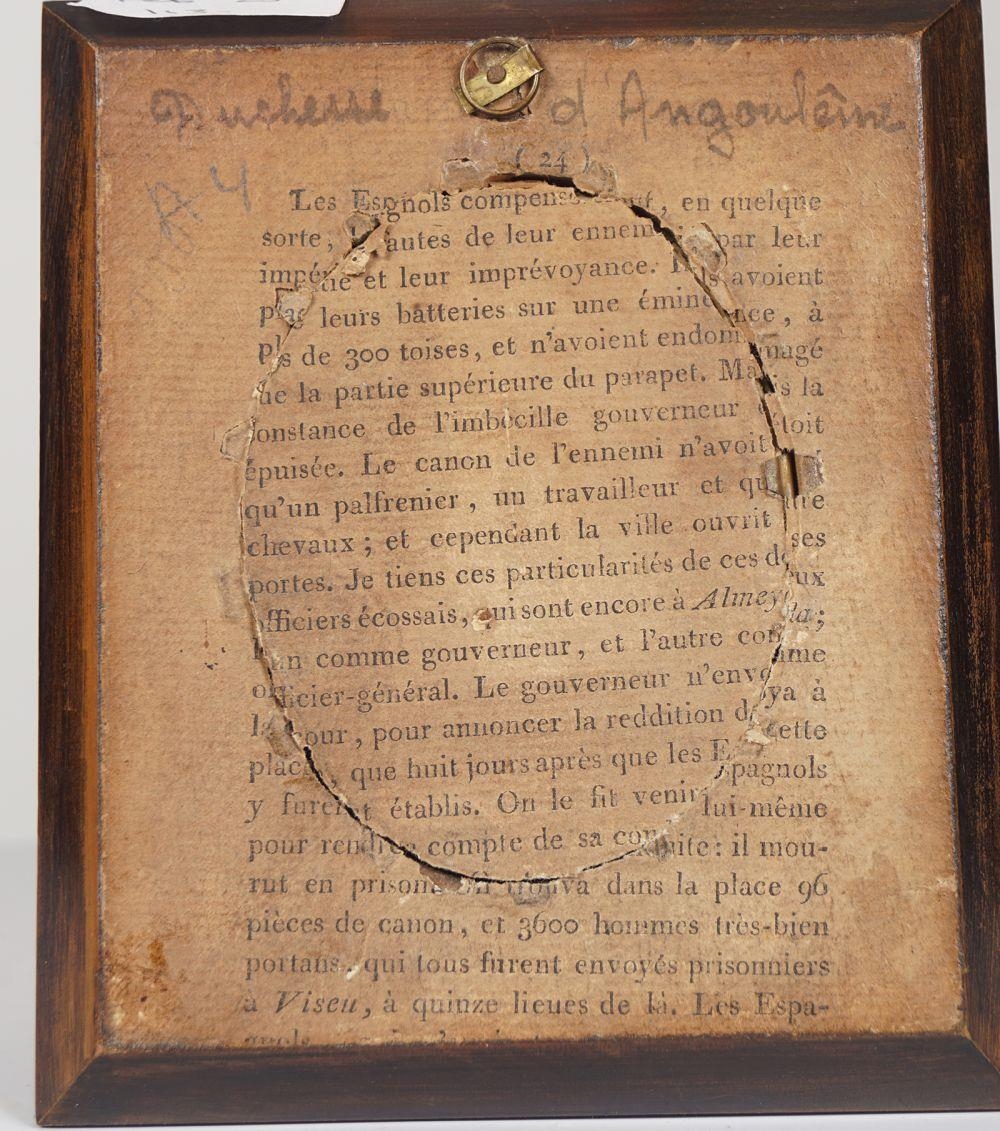 Duchesse d'Angoulême
A 4
( 24 )
Les Espgnols compensoient, en quelque
sorte, les fautes de leur ennemi par leur
impéritie et leur imprévoyance. Ils avoient
placé leurs batteries sur une éminence, à
plus de 300 toises, et n'avoient endommagé
que la partie supérieure du parapet. Mais la
constance de l'imbécille gouverneur étoit
épuisée. Le canon de l'ennemi n'avoit
qu'un palfrenier, un travailleur et quatre
chevaux; et cependant la ville ouvrit ses
portes. Je tiens ces particularités de ces deux
officiers écossais, qui sont encore à Almeyda;
l'un comme gouverneur, et l'autre comme
officier-général. Le gouverneur n'envoya à
la cour, pour annoncer la reddition de cette
place, que huit jours après que les Espagnols
y furent établis. On le fit venir lui-même
pour rendre compte de sa conduite: il mou-
rut en prison. On trouva dans la place 96
pièces de canon, et 3600 hommes très-bien
portans, qui tous furent envoyés prisonniers
à Viseu, à quinze lieues de là. Les Espa-